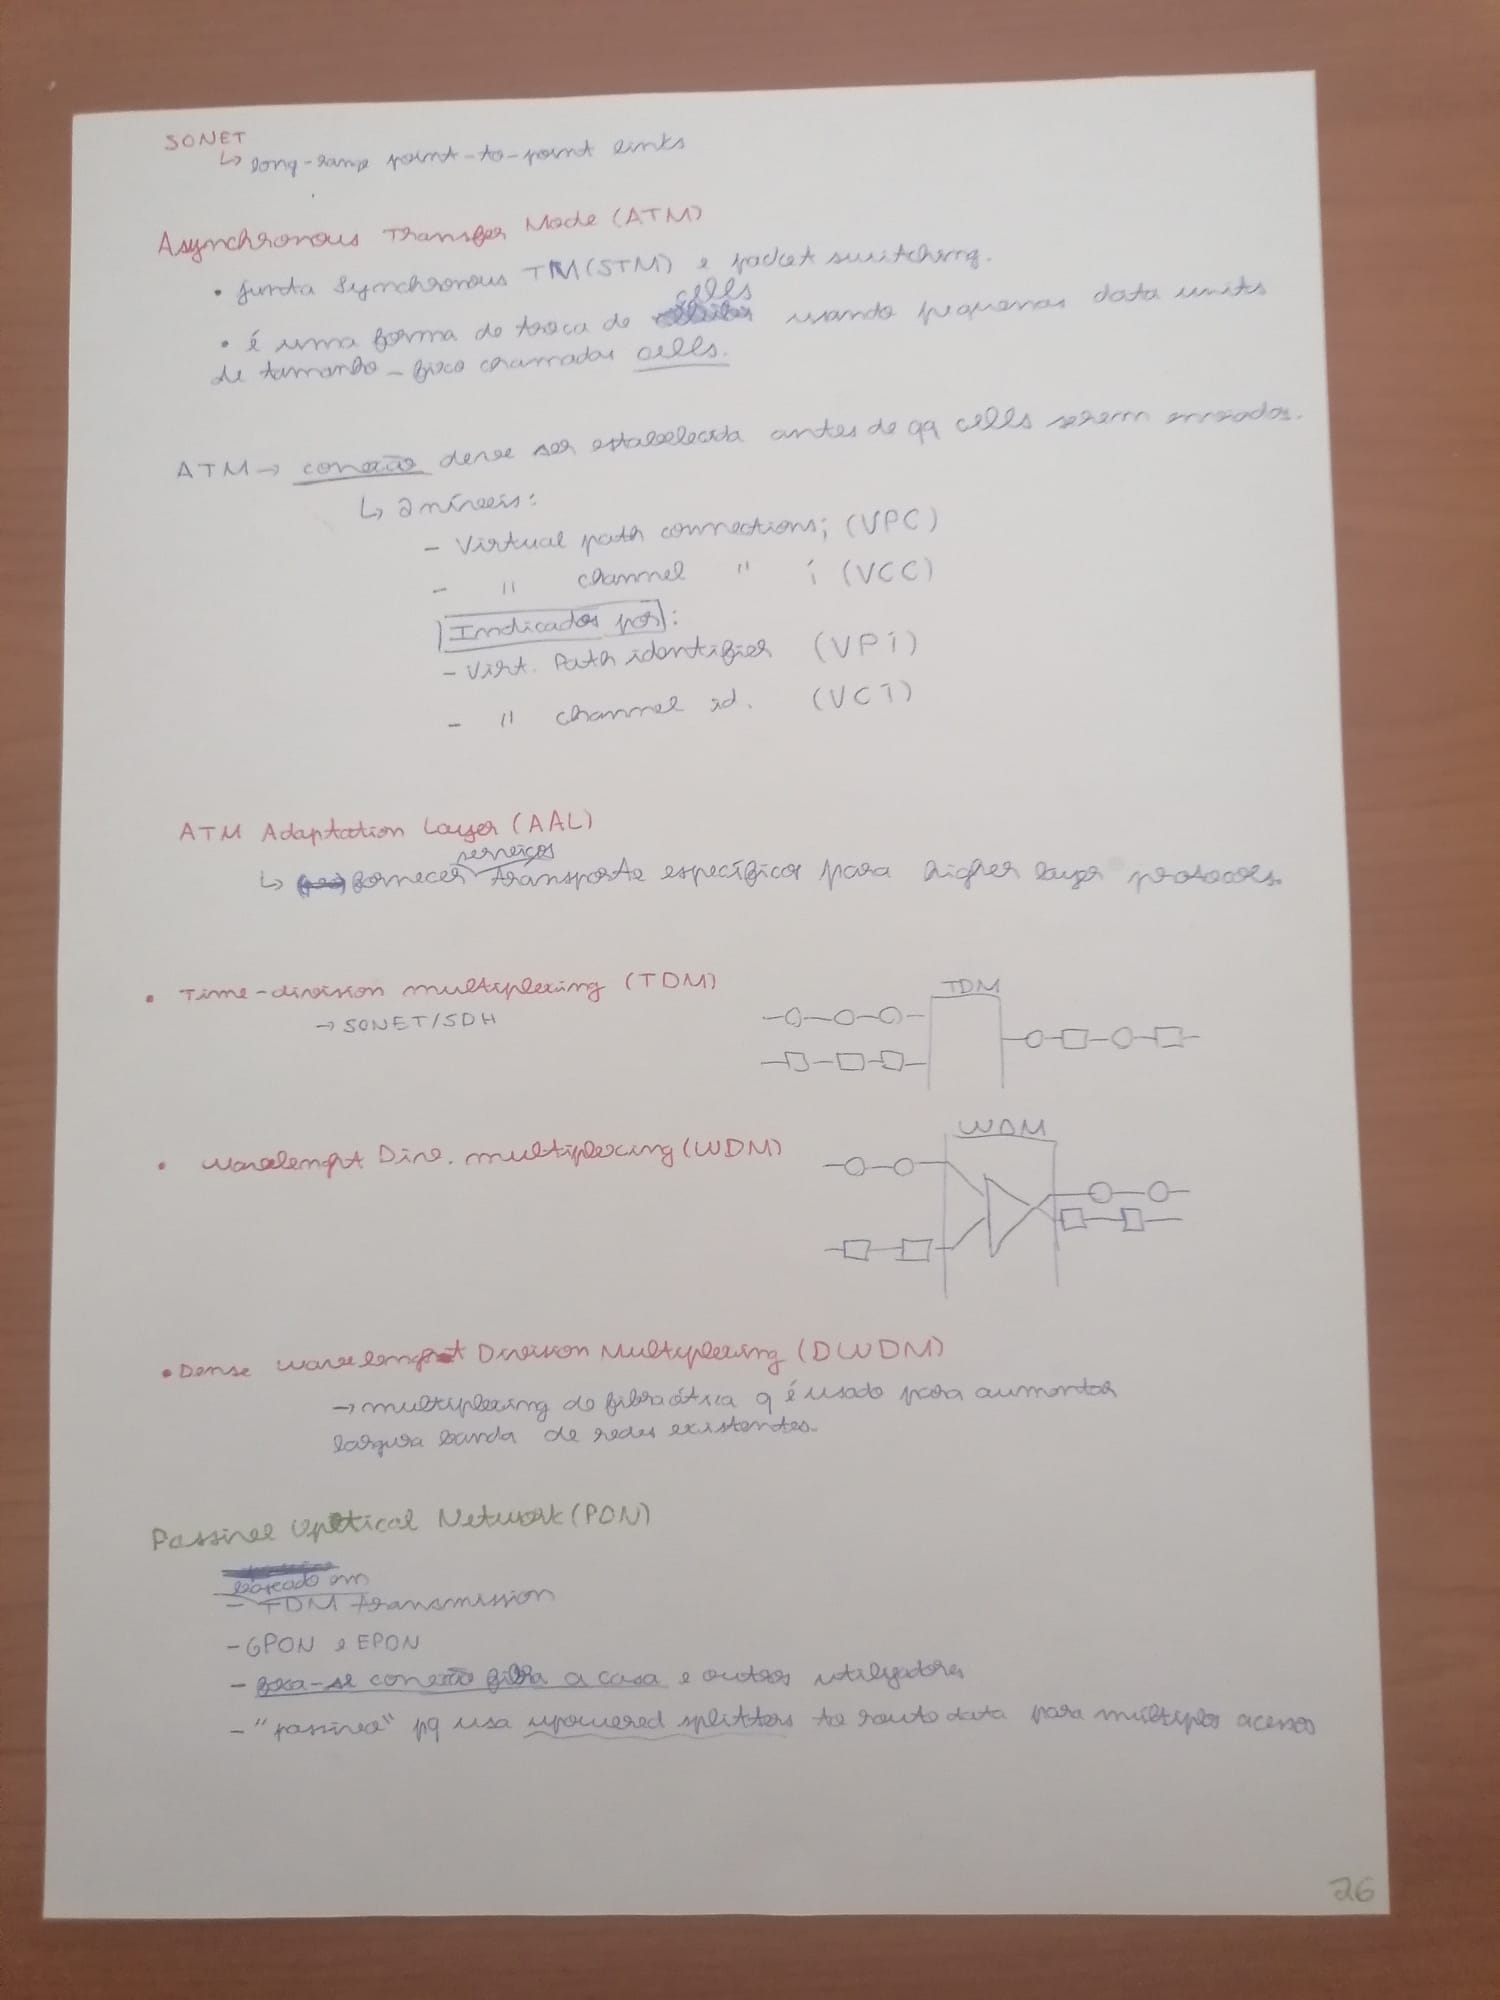 SONET
↳ long-range point-to-point links
Asynchronous Transfer Mode (ATM)
• junta Synchronous TM (STM) e packet switching.
• é uma forma de troca de cells usando pequenas data units
de tamanho-fixo chamadas cells.
ATM → conexão deve ser estabelecida antes de qq cells serem enviados.
↳ 2 níveis:
- Virtual path connections; (VPC)
- " channel " ; (VCC)
Indicados por:
- Virt. Path identifier (VPI)
- " channel id. (VCI)
ATM Adaptation Layer (AAL)
↳ fornecer serviços transporte específicos para higher layer protocols.
• Time-division multiplexing (TDM)
→ SONET/SDH
TDM
• Wavelenght Div. multiplexing (WDM)
WDM
• Dense Wavelenght Division Multiplexing (DWDM)
→ multiplexing de fibra ótica q é usado para aumentar
largura banda de redes existentes.
Passive Optical Network (PON)
baseado em
- TDM transmission
- GPON e EPON
- foca-se conexão fibra a casa e outros utilizadores
- "passive" pq usa unpowered splitters to route data para múltiplos acessos
26